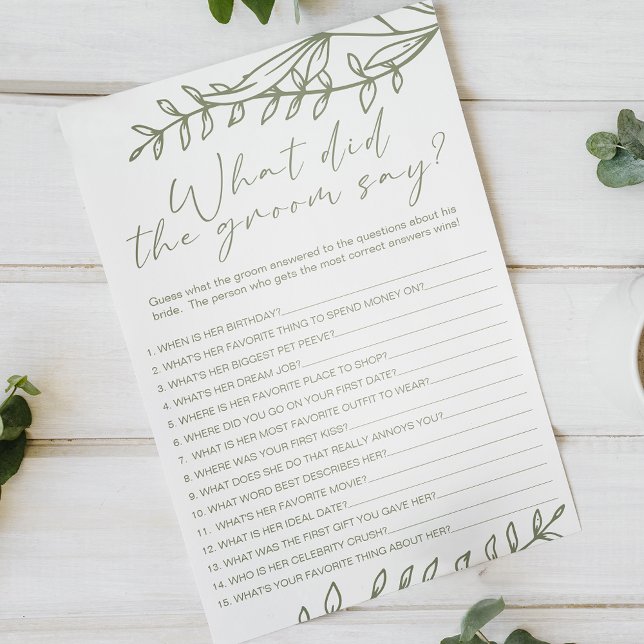 What did
the groom say?
Guess what the groom answered to the questions about his
bride. The person who gets the most correct answers wins!
1. WHEN IS HER BIRTHDAY?
2. WHAT'S HER FAVORITE THING TO SPEND MONEY ON?
3. WHAT'S HER BIGGEST PET PEEVE?
4. WHAT'S HER DREAM JOB?
5. WHERE IS HER FAVORITE PLACE TO SHOP?
6. WHERE DID YOU GO ON YOUR FIRST DATE?
7. WHAT IS HER MOST FAVORITE OUTFIT TO WEAR?
8. WHERE WAS YOUR FIRST KISS?
9. WHAT DOES SHE DO THAT REALLY ANNOYS YOU?
10. WHAT WORD BEST DESCRIBES HER?
11. WHAT'S HER FAVORITE MOVIE?
12. WHAT IS HER IDEAL DATE?
13. WHAT WAS THE FIRST GIFT YOU GAVE HER?
14. WHO IS HER CELEBRITY CRUSH?
15. WHAT'S YOUR FAVORITE THING ABOUT HER?